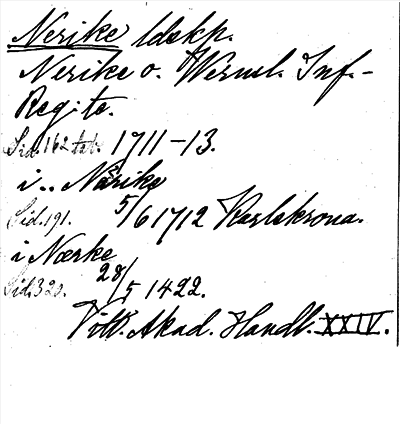 Nerike ldskp.
Nerike o. Werml. Inf.-
Reg:te.
Sid. 162 tab. 1711-13.
i.. Närike
Sid. 191. 5/6 1712 Karlskrona.
i Nærke
Sid. 320. 28/5 1422.
Vitt. Akad. Handl. XXIV.